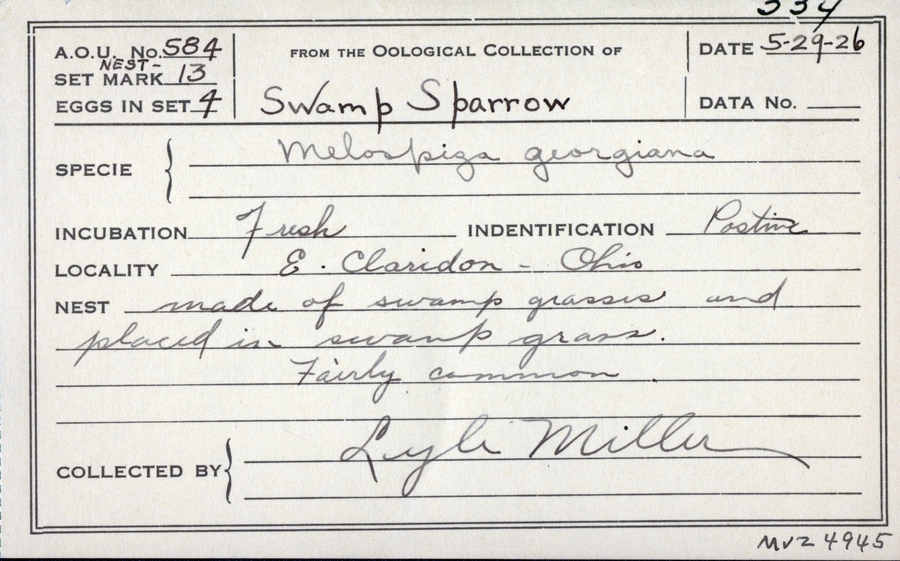 334
A.O.U. No. 584
NEST-
SET MARK 13
EGGS IN SET 4
FROM THE OOLOGICAL COLLECTION OF
Swamp Sparrow
DATE 5-29-26
DATA No.
SPECIE Melospiza georgiana
INCUBATION Fresh INDENTIFICATION Postive
LOCALITY E. Claridon - Ohio
NEST made of swamp grasses and
placed in swamp grass.
Fairly common.
COLLECTED BY Lyle Miller
MVZ 4945